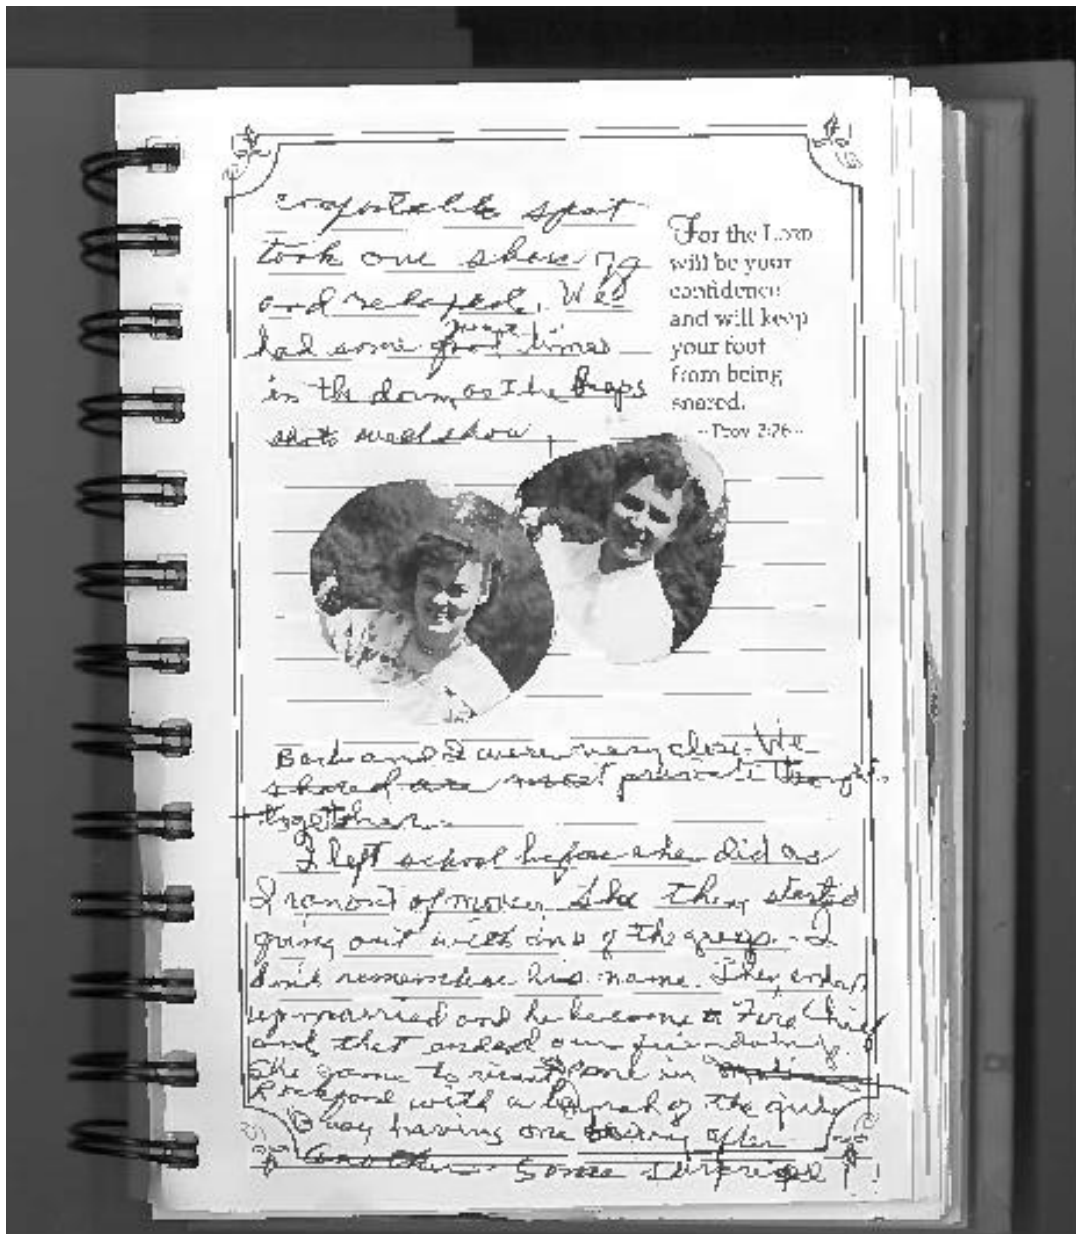 comfortable spot
took our shoes off
and relaxed. We
had some great times
in the dorm as the snaps
shots will show
For the Lord
will be your
confidence
and will keep
your foot
from being
snared.
~ Prov 3:26 ~
Barb and I were very close. We
shared our most private thoughts
together.
I left school before she did as
I ran out of money. She then started
going out with one of the group. I
don't remember his name. They ended
up married and he became a Fire Chief
and that ended our friendship.
She came to visit me in
Rockford with a bunch of the girls
having one after
another. Some surprise!